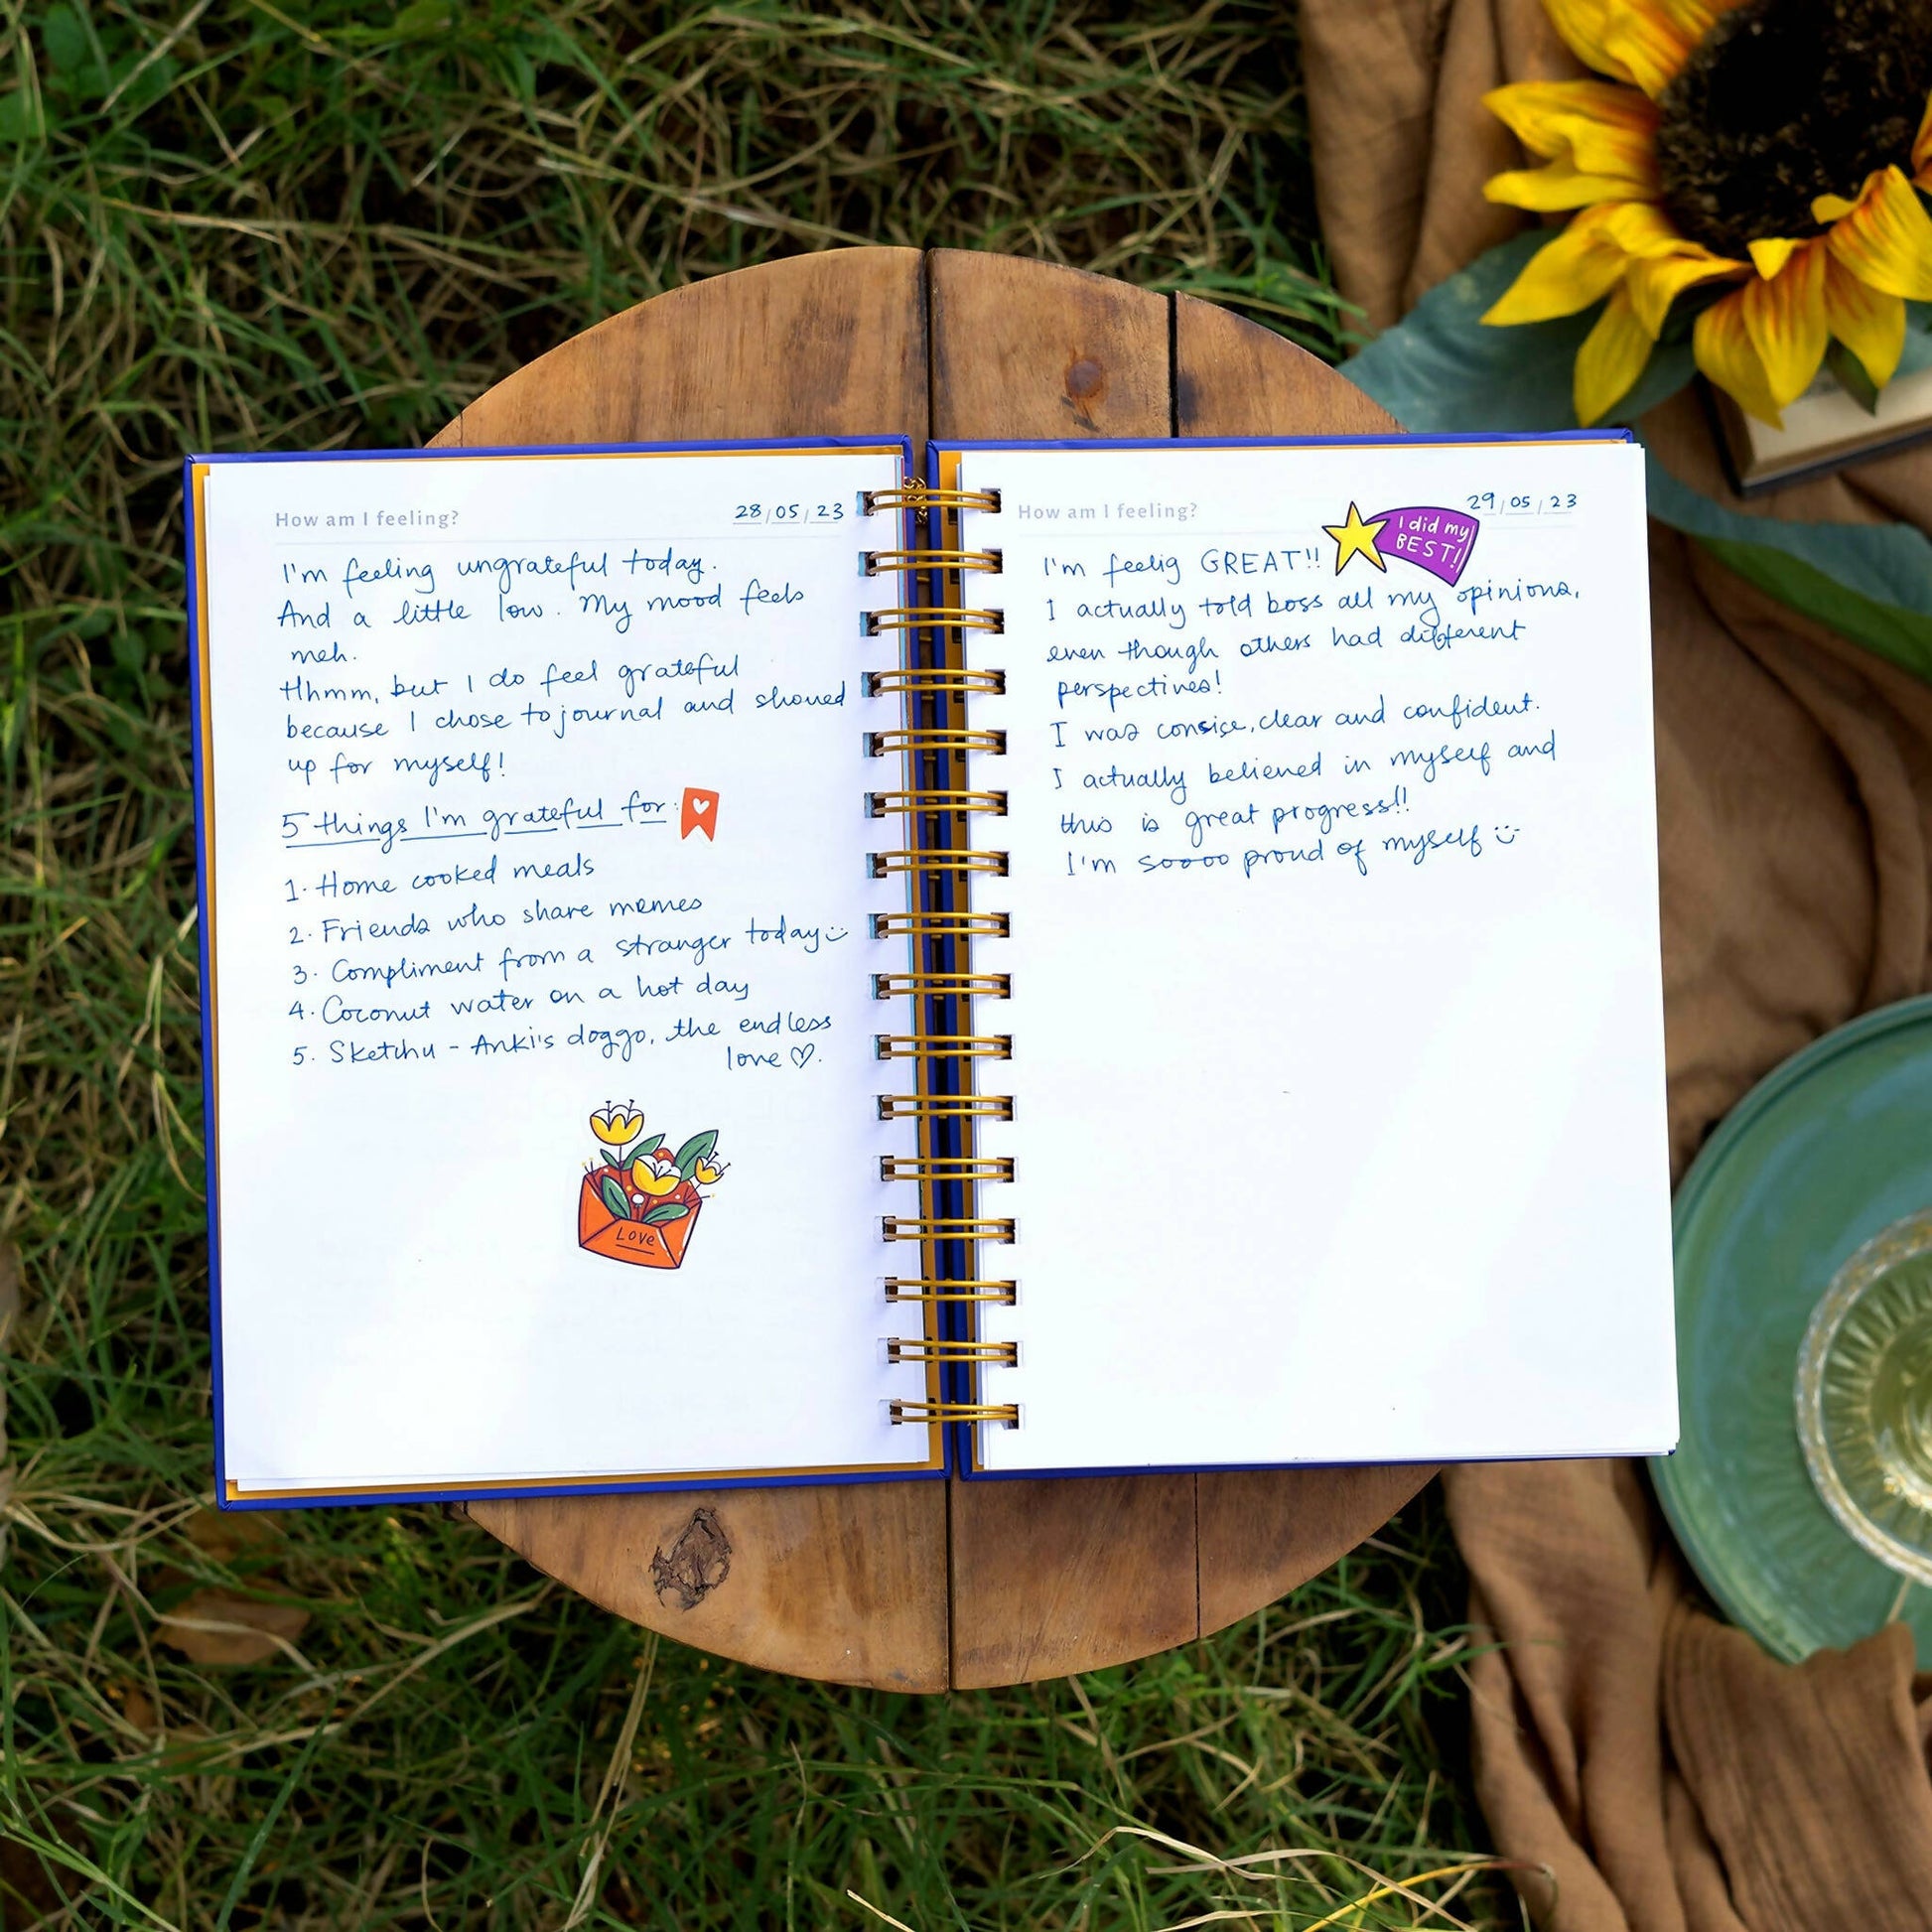 How am I feeling?
28/05/23
I'm feeling ungrateful today.
And a little low. My mood feels
meh.
Hhmm, but I do feel grateful
because I chose to journal and showed
up for myself!
5 things I'm grateful for:
1. Home cooked meals
2. Friends who share memes
3. Compliment from a stranger today :)
4. Coconut water on a hot day
5. Sketchu - Anki's doggo, the endless
love ♡.
LOVE
How am I feeling?
29/05/23
I did my
BEST!
I'm feelig GREAT!!
I actually told boss all my opinions,
even though others had different
perspectives!
I was consice, clear and confident.
I actually believed in myself and
this is great progress!!
I'm soooo proud of myself :)